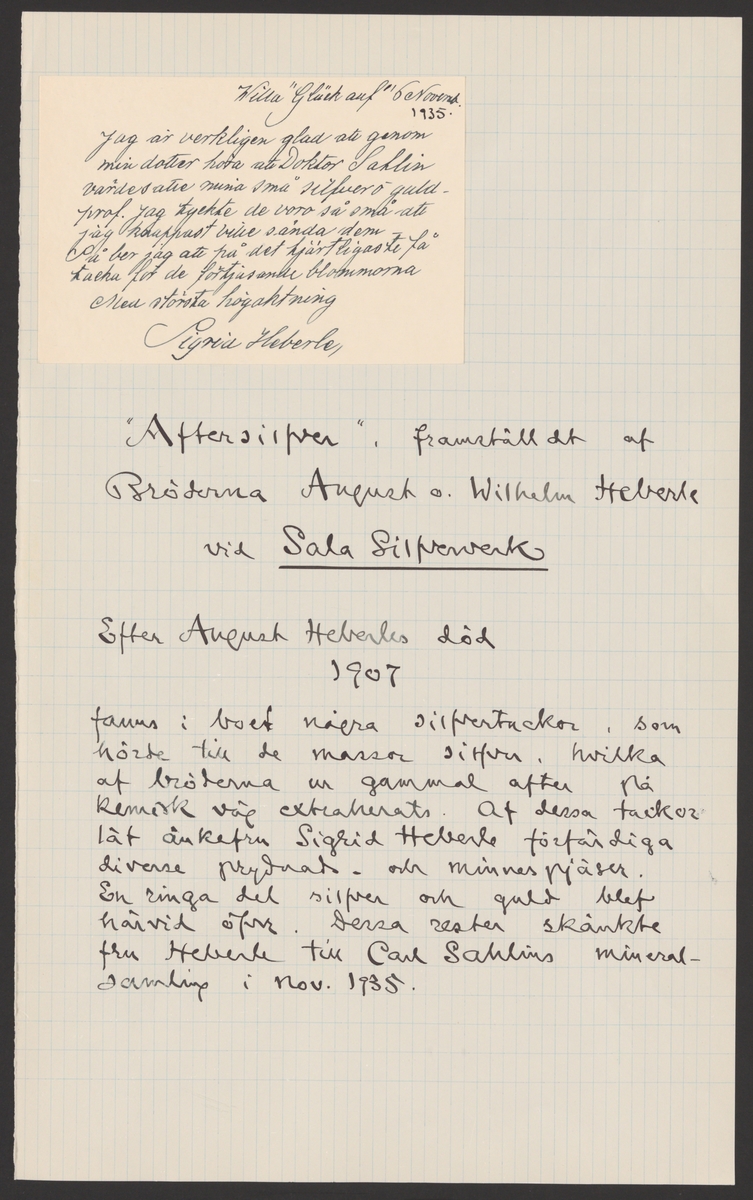 Willa "Glück auf" 6 Novemb.
1935.
Jag är verkligen glad att genom
min dotter höra att Doktor Sahlin
värdesatte mina små silfver o guld-
prof. Jag tyckte de voro så små att
jag knappast ville sända dem –
Så ber jag att på det hjärtligaste få
tacka för de förtjusande blommorna
Med största högaktning
Sigrid Heberle,
"Aftersilfver", framställdt af
Bröderna August o. Wilhelm Heberle
vid Sala Silfververk
Efter August Heberles död
1907
fanns i boet några silfvertackor, som
hörde till de massor silfver, hvilka
af bröderna ur gammal after på
kemisk väg extraherats. Af dessa tackor
lät änkefru Sigrid Heberle förfärdiga
diverse prydnads- och minnespjäser.
En ringa del silfver och guld blef
härvid öfver. Dessa rester skänkte
fru Heberle till Carl Sahlins mineral-
samling i nov. 1935.